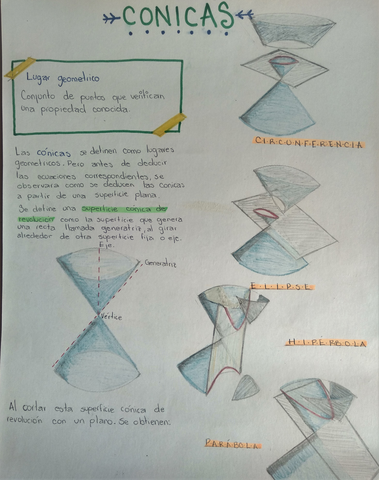 CONICAS
Lugar geometrico
Conjunto de puntos que verifican
una propiedad conocida.
Las cónicas se definen como lugares
geometricos. Pero antes de deducir
las ecuaciones correspondientes, se
observara como se deducen las conicas
a partir de una superficie plana.
Se define una superficie cónica de
revolución como la superficie que genera
una recta llamada generatriz, al girar
alrededor de otra superficie fija o eje.
Eje.
Generatriz
Vértice
Al cortar esta superficie cónica de
revolución con un plano. Se obtienen:
CIRCUNFERENCIA
ELIPSE
HIPÉRBOLA
PARÁBOLA